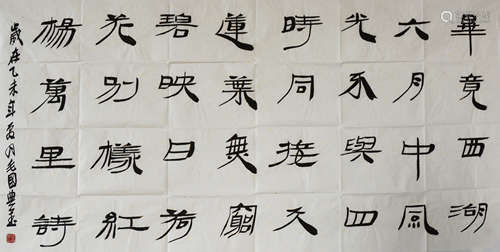 畢竟西湖
六月中風
光不與四
時同接天
蓮葉無窮
碧映日荷
花別樣紅
楊萬里詩
歲在乙未年夏月毛國典